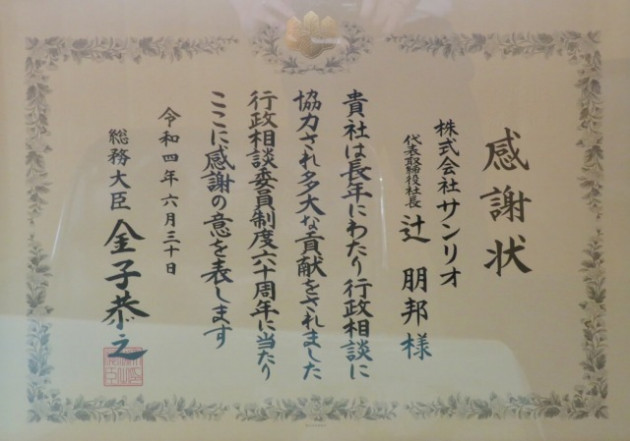 感謝状
株式会社サンリオ
代表取締役社長 辻 朋邦様
貴社は長年にわたり行政相談に
協力され多大な貢献をされました
行政相談委員制度六十周年に当たり
ここに感謝の意を表します
令和四年六月三十日
総務大臣 金子恭之